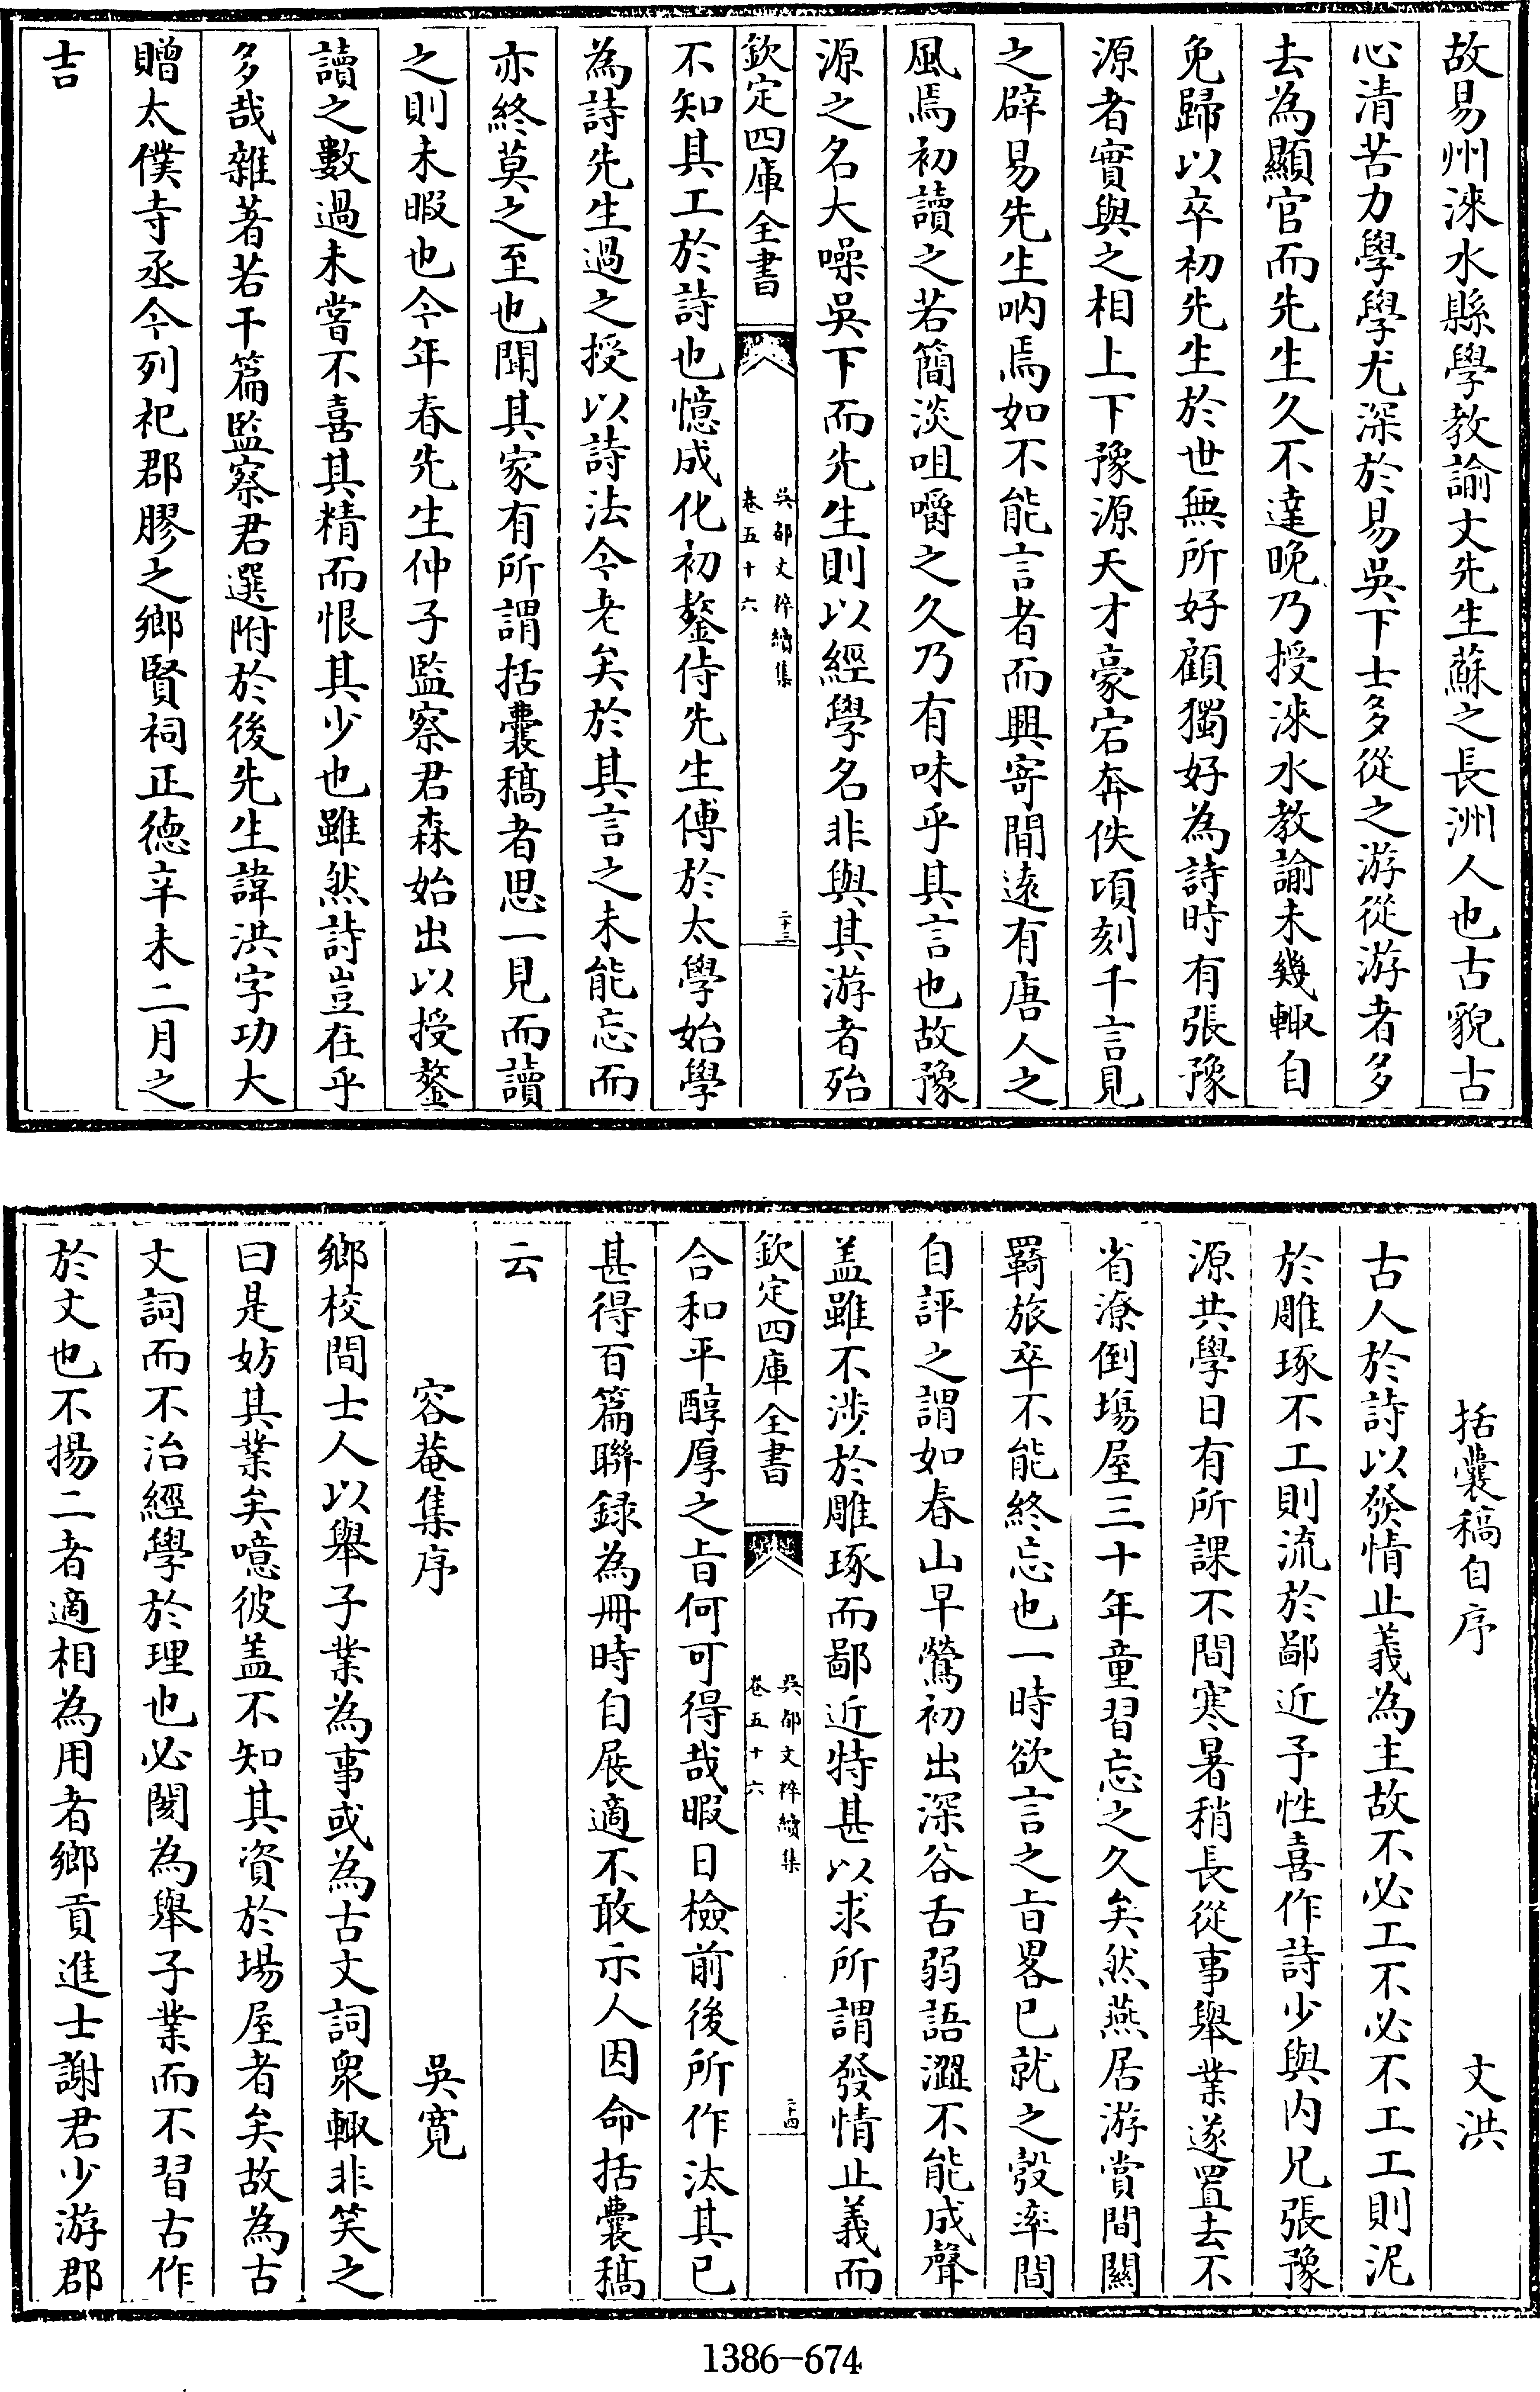 故易州淶水縣學教諭文先生蘇之長洲人也古貌古
心清苦力學學尤深於易吳下士多從之游從游者多
去為顯官而先生久不達晚乃授淶水教諭未幾輙自
免歸以卒初先生於世無所好顧獨好為詩時有張豫
源者實與之相上下豫源天才豪宕奔佚頃刻千言見
之辟易先生吶焉如不能言者而興寄閒遠有唐人之
風焉初讀之若簡淡咀嚼之久乃有味乎其言也故豫
源之名大噪吳下而先生則以經學名非與其游者殆
欽定四庫全書
吳都文粹續集
卷五十六
二十三
不知其工於詩也憶成化初鏊侍先生傅於太學始學
為詩先生過之授以詩法今老矣於其言之未能忘而
亦終莫之至也聞其家有所謂括囊稿者思一見而讀
之則未暇也今年春先生仲子監察君森始出以授鏊
讀之數過未嘗不喜其精而恨其少也雖然詩豈在乎
多哉雜著若干篇監察君選附於後先生諱洪字功大
贈太僕寺丞今列祀郡膠之鄉賢祠正德辛未二月之
吉
括囊稿自序　文洪
古人於詩以發情止義為主故不必工不必不工工則泥
於雕琢不工則流於鄙近予性喜作詩少與内兄張豫
源共學日有所課不間寒暑稍長從事舉業遂置去不
省潦倒塲屋三十年童習忘之久矣然燕居游賞間關
羇旅卒不能終忘也一時欲言之旨畧已就之彀率間
自評之謂如春山早鶯初出深谷舌弱語澀不能成聲
盖雖不涉於雕琢而鄙近特甚以求所謂發情止義而
欽定四庫全書
吳都文粹續集
卷五十六
二十四
合和平醇厚之旨何可得哉暇日檢前後所作汰其已
甚得百篇聯録為冊時自展適不敢示人因命括囊稿
云
容菴集序　吳寛
鄉校間士人以舉子業為事或為古文詞衆輙非笑之
曰是妨其業矣噫彼盖不知其資於場屋者矣故為古
文詞而不治經學於理也必闋為舉子業而不習古作
於文也不揚二者適相為用者鄉貢進士謝君少游郡
1386-674